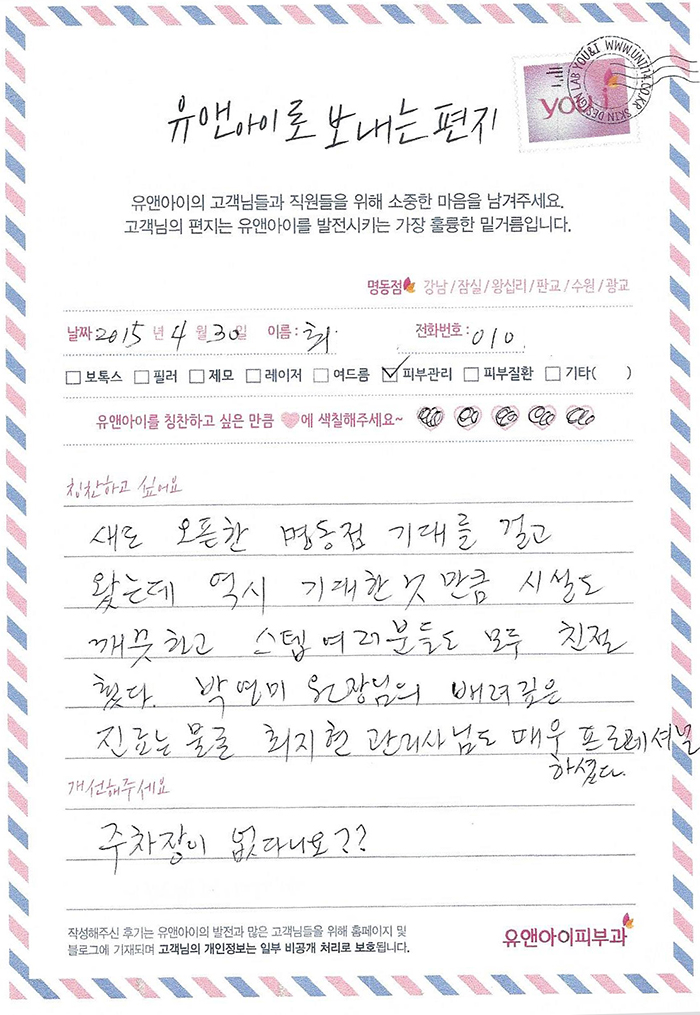 유앤아이로 보내는 편지
you i
SKIN DESIGN LAB YOU&I WWW.UNI114.CO.KR
유앤아이의 고객님들과 직원들을 위해 소중한 마음을 남겨주세요.
고객님의 편지는 유앤아이를 발전시키는 가장 훌륭한 밑거름입니다.
명동점 강남 / 잠실 / 왕십리 / 판교 / 수원 / 광교
날짜 2015 년 4 월 30일 이름 : 최 전화번호 : 010
보톡스 필러 제모 레이저 여드름 피부관리 피부질환 기타( )
유앤아이를 칭찬하고 싶은 만큼 에 색칠해주세요~
칭찬하고 싶어요
새로 오픈한 명동점 기대를 걸고
왔는데 역시 기대한것 만큼 시설도
깨끗하고 스텝여러분들도 모두 친절
했다. 박연미 원장님의 배려깊은
진료는 물론 최지현 관리사님도 매우 프로레셔널
하셨다.
개선해주세요
주차장이 없다니요??
작성해주신 후기는 유앤아이의 발전과 많은 고객님들을 위해 홈페이지 및
블로그에 기재되며 고객님의 개인정보는 일부 비공개 처리로 보호됩니다.
유앤아이피부과